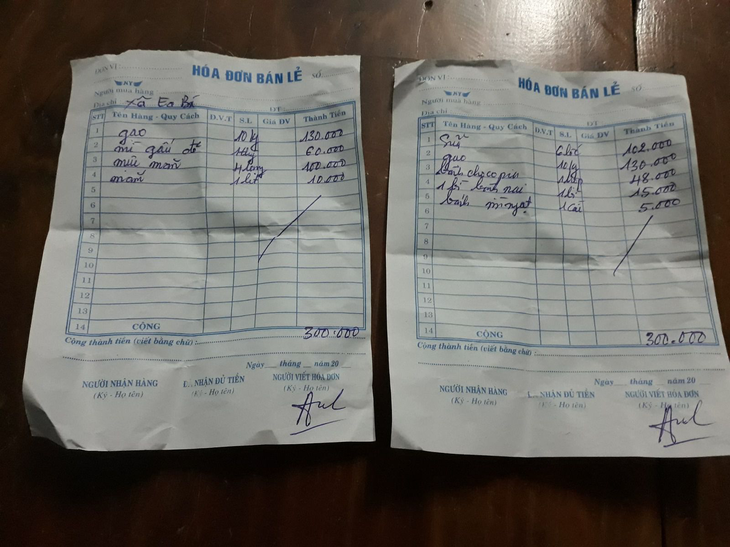 HÓA ĐƠN BÁN LẺ SỐ
ĐƠN VỊ
AT
Người mua hàng
Địa chỉ Xã Ea Bá ĐT
STT Tên Hàng - Quy Cách Đ.V.T S.L Giá ĐV Thành Tiền
1 gạo 10 kg 130.000
2 mì gấu đỏ 60.000
3 100.000
4 mắm 1 10.000
5
6
7
8
9
10
11
12
13
14 CỘNG 300.000
Cộng thành tiền (viết bằng chữ) :
Ngày tháng năm 20
NGƯỜI NHẬN HÀNG
(Ký - Họ tên)
Đ... NHẬN ĐỦ TIỀN
(Ký - Họ tên)
NGƯỜI VIẾT HÓA ĐƠN
(Ký - Họ tên)
HÓA ĐƠN BÁN LẺ SỐ
ĐƠN VỊ
AT
Người mua hàng
Địa chỉ ĐT
STT Tên Hàng - Quy Cách Đ.V.T S.L Giá ĐV Thành Tiền
1 Sữ 102.000
2 gạo 10 kg 130.000
3 bánh chocopie 1 hộp 48.000
4 1 bì bánh 15.000
5 bánh mì ngọt 1 cái 5.000
6
7
8
9
10
11
12
13
14 CỘNG 300.000
Cộng thành tiền (viết bằng chữ) :
Ngày tháng năm 20
NGƯỜI NHẬN HÀNG
(Ký - Họ tên)
Đ... NHẬN ĐỦ TIỀN
(Ký - Họ tên)
NGƯỜI VIẾT HÓA ĐƠN
(Ký - Họ tên)